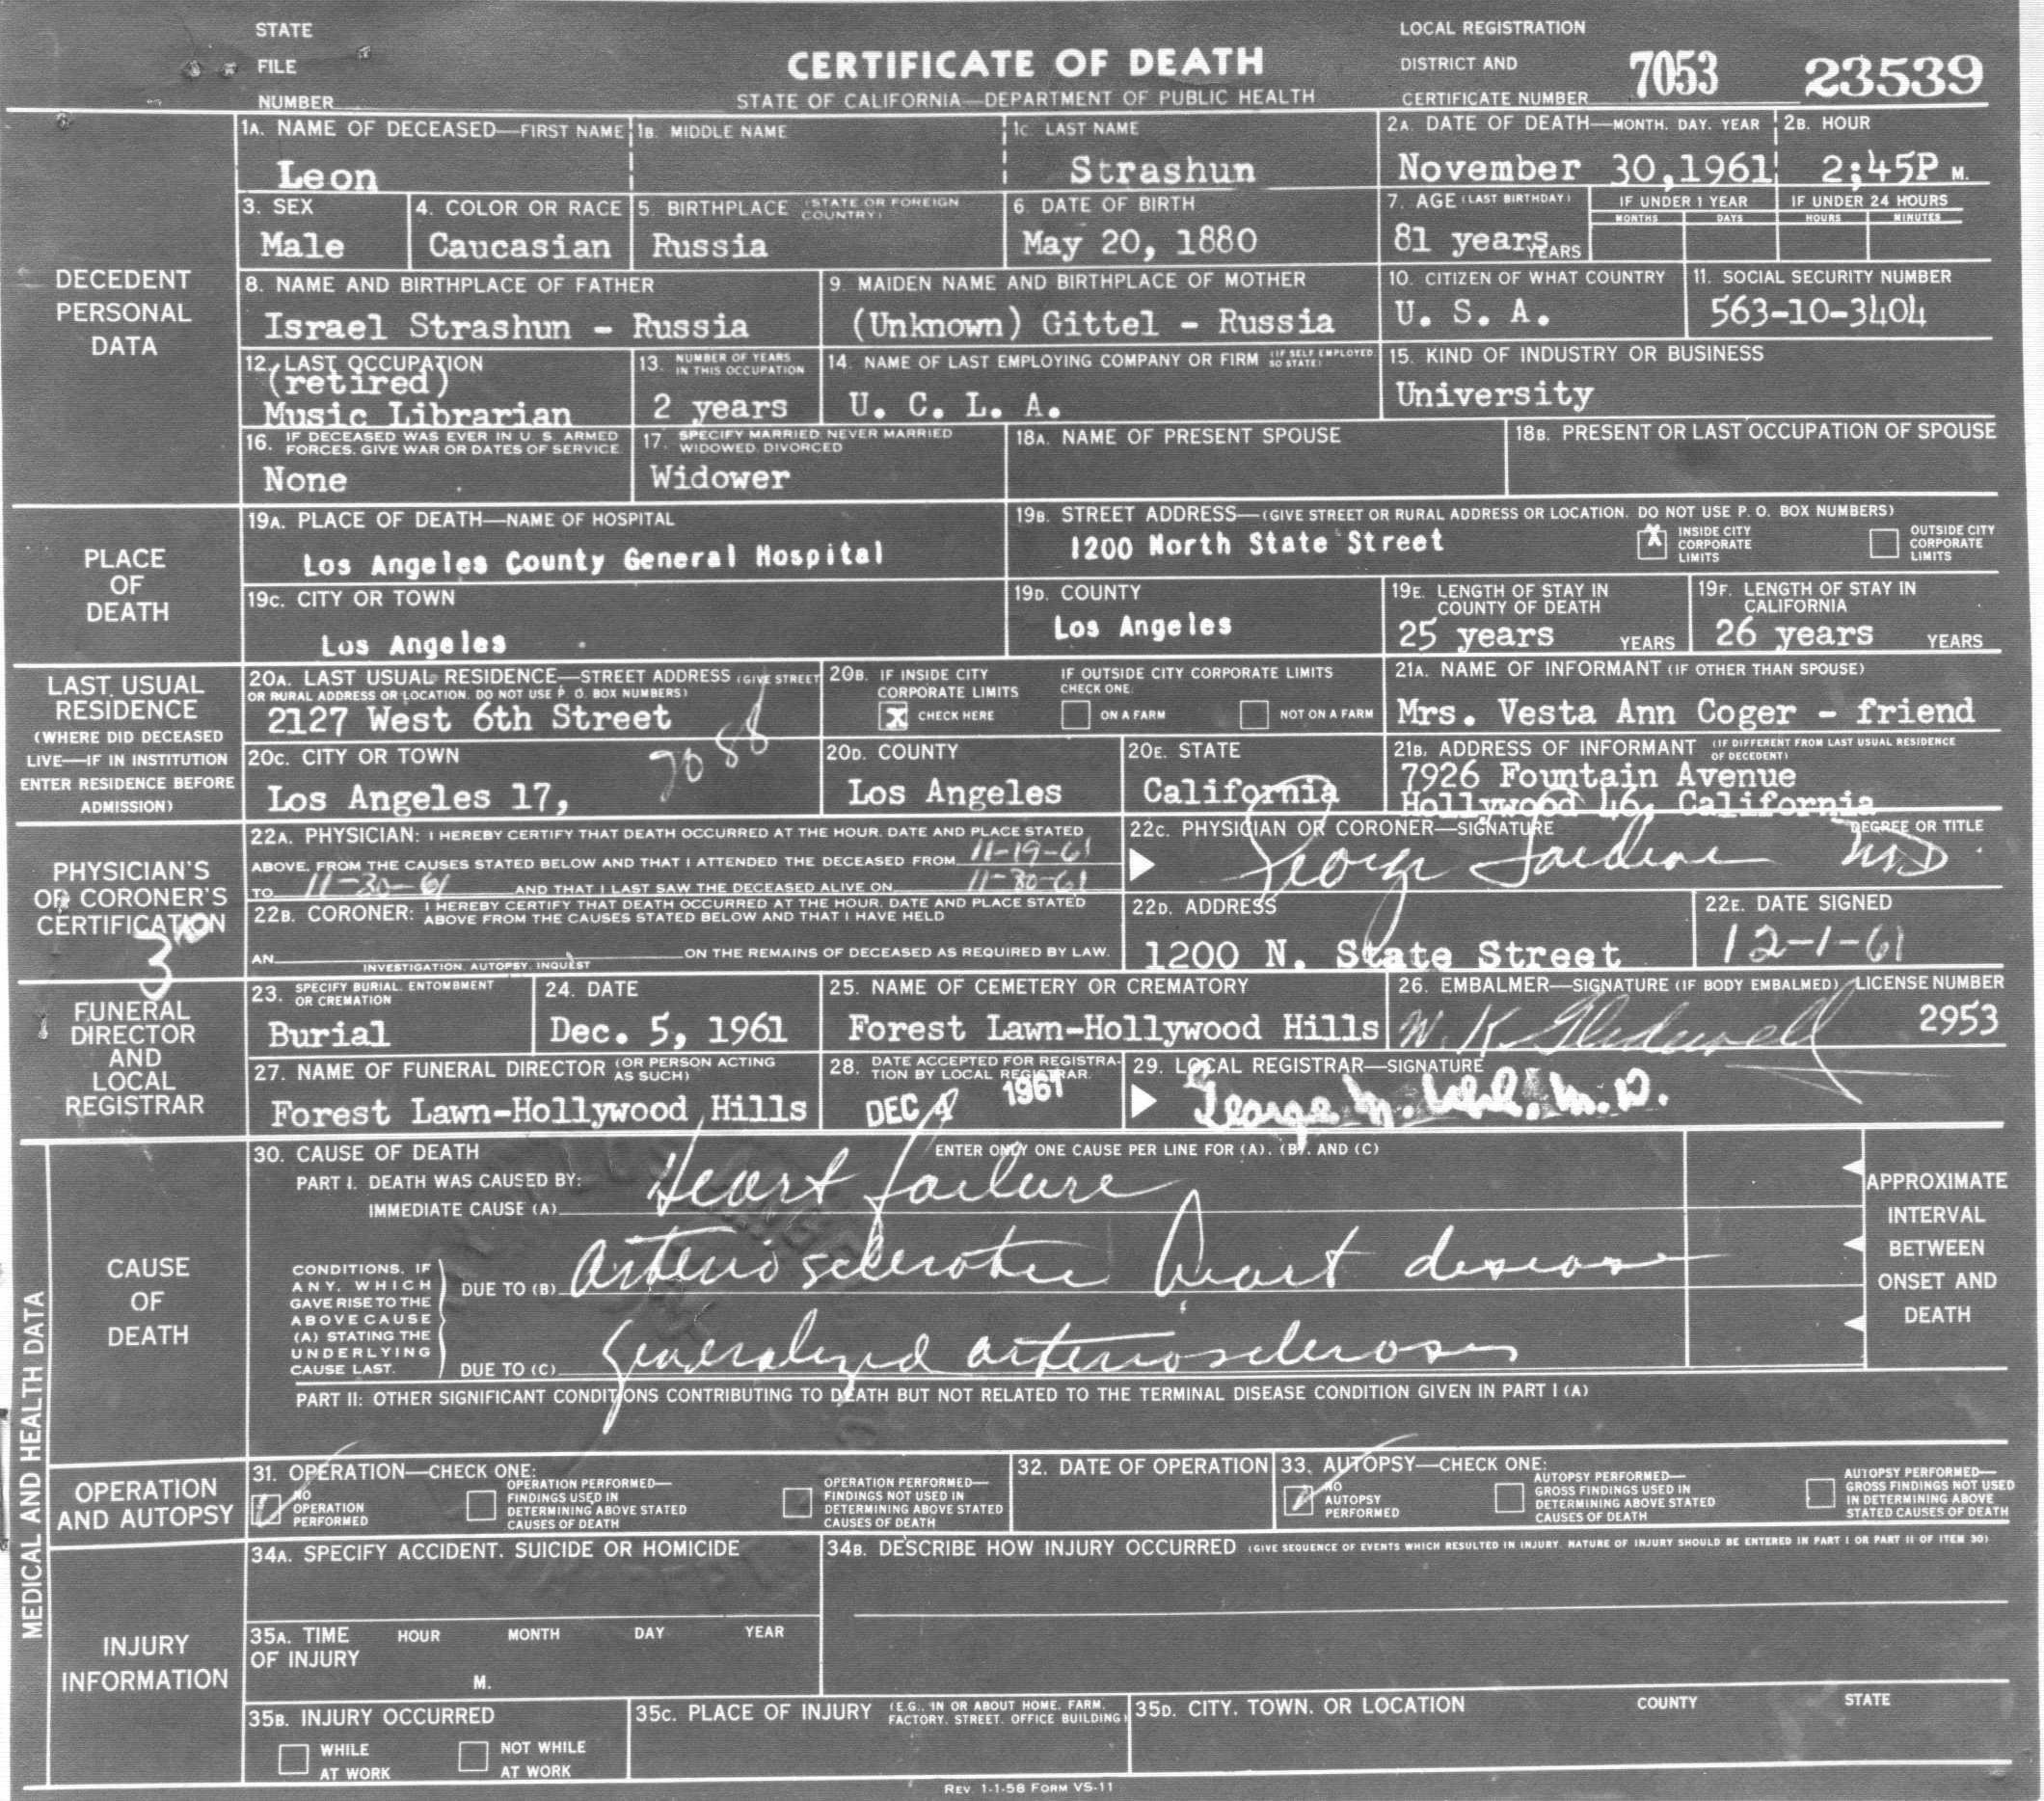 STATE
FILE
NUMBER
CERTIFICATE OF DEATH
STATE OF CALIFORNIA—DEPARTMENT OF PUBLIC HEALTH
LOCAL REGISTRATION
DISTRICT AND
CERTIFICATE NUMBER
7053 23539
DECEDENT
PERSONAL
DATA
1A. NAME OF DECEASED—FIRST NAME
Leon
1B. MIDDLE NAME
1C. LAST NAME
Strashun
2A. DATE OF DEATH—MONTH, DAY, YEAR
November 30,1961
2B. HOUR
2;45P M.
3. SEX
Male
4. COLOR OR RACE
Caucasian
5. BIRTHPLACE (STATE OR FOREIGN
COUNTRY)
Russia
6. DATE OF BIRTH
May 20, 1880
7. AGE (LAST BIRTHDAY)
81 years YEARS
IF UNDER 1 YEAR
MONTHS DAYS
IF UNDER 24 HOURS
HOURS MINUTES
8. NAME AND BIRTHPLACE OF FATHER
Israel Strashun - Russia
9. MAIDEN NAME AND BIRTHPLACE OF MOTHER
(Unknown) Gittel - Russia
10. CITIZEN OF WHAT COUNTRY
U. S. A.
11. SOCIAL SECURITY NUMBER
563-10-3404
12. LAST OCCUPATION
(retired)
Music Librarian
13. NUMBER OF YEARS
IN THIS OCCUPATION
2 years
14. NAME OF LAST EMPLOYING COMPANY OR FIRM (IF SELF EMPLOYED,
SO STATE)
U. C. L. A.
15. KIND OF INDUSTRY OR BUSINESS
University
16. IF DECEASED WAS EVER IN U. S. ARMED
FORCES, GIVE WAR OR DATES OF SERVICE
None
17. SPECIFY MARRIED, NEVER MARRIED
WIDOWED, DIVORCED
Widower
18A. NAME OF PRESENT SPOUSE
18B. PRESENT OR LAST OCCUPATION OF SPOUSE
PLACE
OF
DEATH
19A. PLACE OF DEATH—NAME OF HOSPITAL
Los Angeles County General Hospital
19B. STREET ADDRESS—(GIVE STREET OR RURAL ADDRESS OR LOCATION. DO NOT USE P. O. BOX NUMBERS)
1200 North State Street
X INSIDE CITY
CORPORATE
LIMITS
OUTSIDE CITY
CORPORATE
LIMITS
19C. CITY OR TOWN
Los Angeles
19D. COUNTY
Los Angeles
19E. LENGTH OF STAY IN
COUNTY OF DEATH
25 years YEARS
19F. LENGTH OF STAY IN
CALIFORNIA
26 years YEARS
LAST USUAL
RESIDENCE
(WHERE DID DECEASED
LIVE—IF IN INSTITUTION
ENTER RESIDENCE BEFORE
ADMISSION)
20A. LAST USUAL RESIDENCE—STREET ADDRESS (GIVE STREET
OR RURAL ADDRESS OR LOCATION. DO NOT USE P. O. BOX NUMBERS)
2127 West 6th Street
20B. IF INSIDE CITY
CORPORATE LIMITS
X CHECK HERE
IF OUTSIDE CITY CORPORATE LIMITS
CHECK ONE:
ON A FARM
NOT ON A FARM
21A. NAME OF INFORMANT (IF OTHER THAN SPOUSE)
Mrs. Vesta Ann Coger - friend
20C. CITY OR TOWN
Los Angeles 17,
20D. COUNTY
Los Angeles
20E. STATE
California
21B. ADDRESS OF INFORMANT (IF DIFFERENT FROM LAST USUAL RESIDENCE
OF DECEDENT)
7926 Fountain Avenue
Hollywood 46, California
PHYSICIAN'S
OR CORONER'S
CERTIFICATION
22A. PHYSICIAN: I HEREBY CERTIFY THAT DEATH OCCURRED AT THE HOUR, DATE AND PLACE STATED
ABOVE, FROM THE CAUSES STATED BELOW AND THAT I ATTENDED THE DECEASED FROM 11-19-61
TO 11-30-61 AND THAT I LAST SAW THE DECEASED ALIVE ON 11-30-61
22B. CORONER: I HEREBY CERTIFY THAT DEATH OCCURRED AT THE HOUR, DATE AND PLACE STATED
ABOVE FROM THE CAUSES STATED BELOW AND THAT I HAVE HELD
AN ON THE REMAINS OF DECEASED AS REQUIRED BY LAW.
INVESTIGATION, AUTOPSY, INQUEST
22C. PHYSICIAN OR CORONER—SIGNATURE
DEGREE OR TITLE
George MD
22D. ADDRESS
1200 N. State Street
22E. DATE SIGNED
12-1-61
FUNERAL
DIRECTOR
AND
LOCAL
REGISTRAR
23. SPECIFY BURIAL, ENTOMBMENT
OR CREMATION
Burial
24. DATE
Dec. 5, 1961
25. NAME OF CEMETERY OR CREMATORY
Forest Lawn-Hollywood Hills
26. EMBALMER—SIGNATURE (IF BODY EMBALMED) LICENSE NUMBER
W. K. 2953
27. NAME OF FUNERAL DIRECTOR (OR PERSON ACTING
AS SUCH)
Forest Lawn-Hollywood Hills
28. DATE ACCEPTED FOR REGISTRA-
TION BY LOCAL REGISTRAR.
DEC 4 1961
29. LOCAL REGISTRAR—SIGNATURE
George M. Uhl, M.D.
MEDICAL AND HEALTH DATA
CAUSE
OF
DEATH
30. CAUSE OF DEATH
ENTER ONLY ONE CAUSE PER LINE FOR (A), (B), AND (C)
PART I. DEATH WAS CAUSED BY:
IMMEDIATE CAUSE (A) Heart failure
CONDITIONS, IF
ANY, WHICH
GAVE RISE TO THE
ABOVE CAUSE
(A) STATING THE
UNDERLYING
CAUSE LAST.
DUE TO (B) Arteriosclerotic heart disease
DUE TO (C) Generalized arteriosclerosis
APPROXIMATE
INTERVAL
BETWEEN
ONSET AND
DEATH
PART II: OTHER SIGNIFICANT CONDITIONS CONTRIBUTING TO DEATH BUT NOT RELATED TO THE TERMINAL DISEASE CONDITION GIVEN IN PART I (A)
OPERATION
AND AUTOPSY
31. OPERATION—CHECK ONE:
NO
OPERATION
PERFORMED
OPERATION PERFORMED—
FINDINGS USED IN
DETERMINING ABOVE STATED
CAUSES OF DEATH
OPERATION PERFORMED—
FINDINGS NOT USED IN
DETERMINING ABOVE STATED
CAUSES OF DEATH
32. DATE OF OPERATION
33. AUTOPSY—CHECK ONE:
NO
AUTOPSY
PERFORMED
AUTOPSY PERFORMED—
GROSS FINDINGS USED IN
DETERMINING ABOVE STATED
CAUSES OF DEATH
AUTOPSY PERFORMED—
GROSS FINDINGS NOT USED
IN DETERMINING ABOVE
STATED CAUSES OF DEATH
INJURY
INFORMATION
34A. SPECIFY ACCIDENT, SUICIDE OR HOMICIDE
34B. DESCRIBE HOW INJURY OCCURRED (GIVE SEQUENCE OF EVENTS WHICH RESULTED IN INJURY. NATURE OF INJURY SHOULD BE ENTERED IN PART I OR PART II OF ITEM 30)
35A. TIME HOUR MONTH DAY YEAR
OF INJURY
M.
35B. INJURY OCCURRED
WHILE
AT WORK
NOT WHILE
AT WORK
35C. PLACE OF INJURY (E.G., IN OR ABOUT HOME, FARM,
FACTORY, STREET, OFFICE BUILDING)
35D. CITY, TOWN, OR LOCATION COUNTY STATE
REV. 1-1-58 FORM VS-11